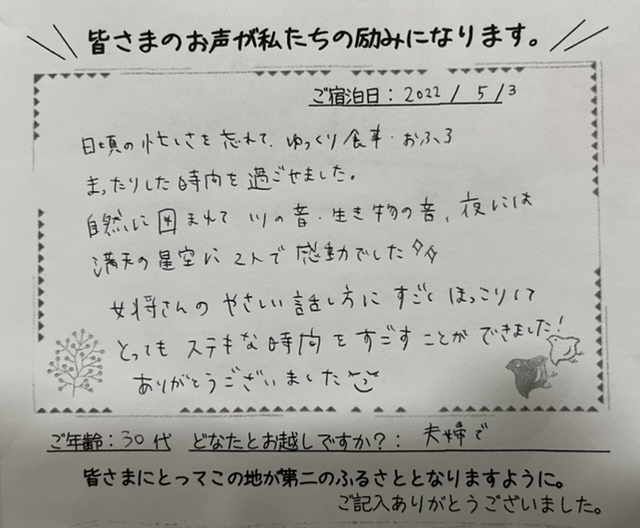 皆さまのお声が私たちの励みになります。
ご宿泊日：2022 / 5 / 3
日頃の忙しさを忘れて、ゆっくり食事・おふろ
まったりした時間を過ごせました。
自然に囲まれて 川の音・生き物の音、夜には
満天の星空に 2人で 感動でした
女将さんの やさしい 話し方に すごく ほっこりして
とっても ステキな時間を すごすことが できました!
ありがとうございました
ご年齢：30代 どなたとお越しですか？： 夫婦で
皆さまにとってこの地が第二のふるさととなりますように。
ご記入ありがとうございました。